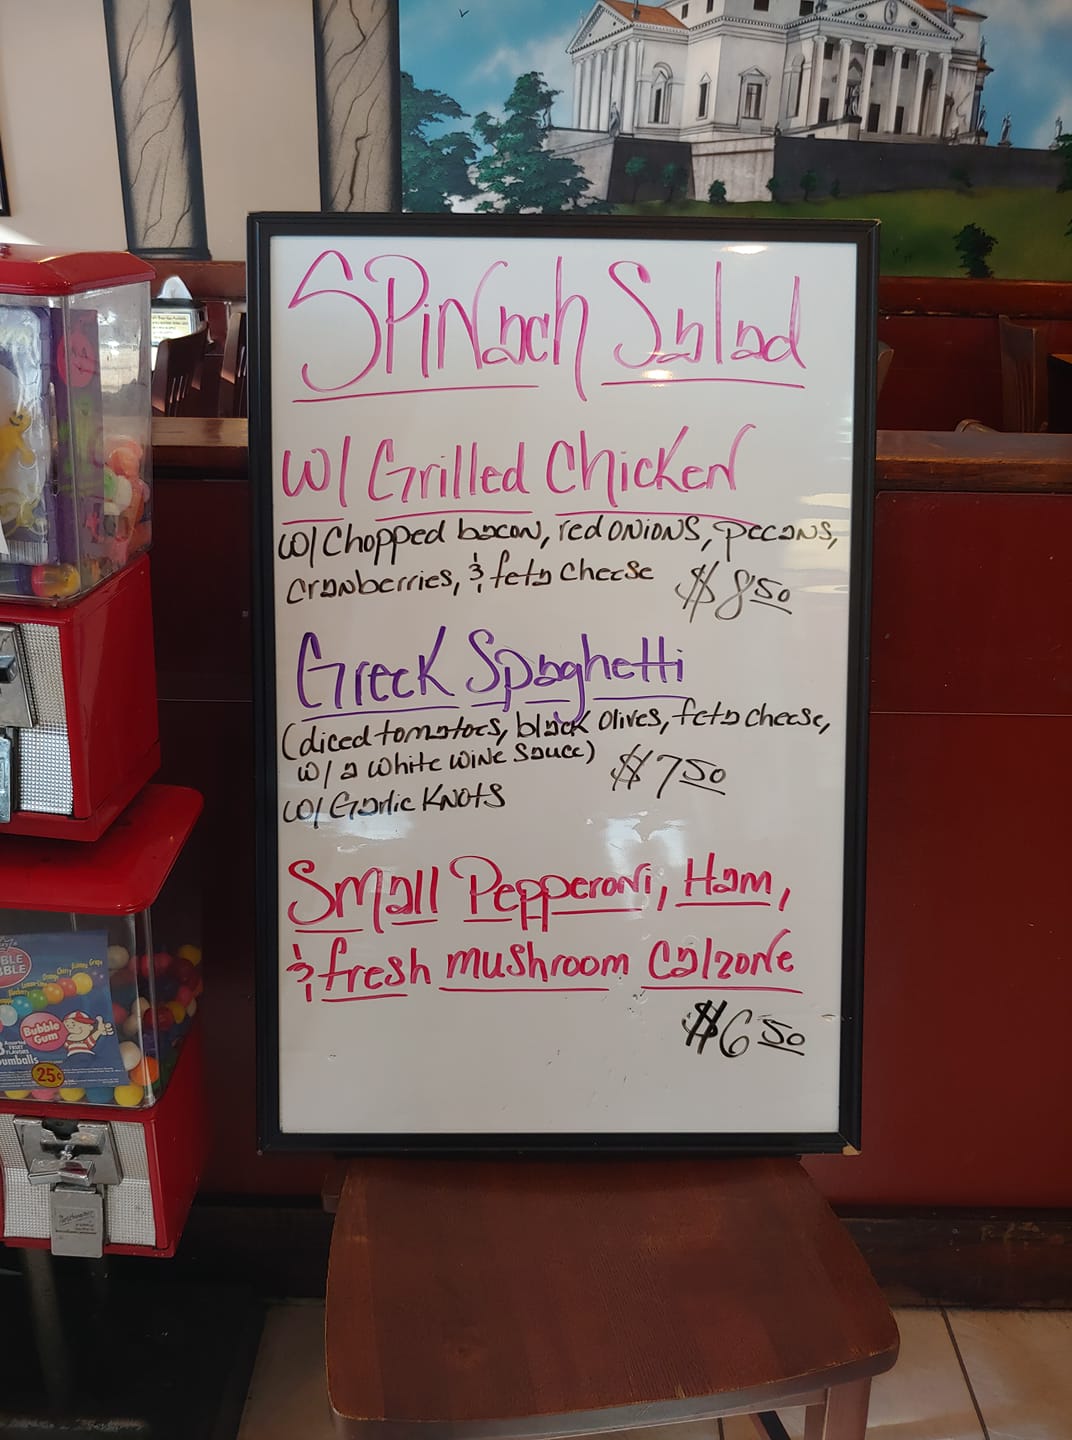 Spinach Salad
w/ Grilled Chicken
w/ Chopped bacon, red onions, pecans,
cranberries, & feta cheese $8.50
Greek Spaghetti
(diced tomatoes, black olives, feta cheese,
w/ a white wine sauce) $7.50
w/ Garlic Knots
Small Pepperoni, Ham,
& fresh mushroom Calzone
$6.50
BLE
BBLE
Bubble
Gum
umballs
25¢